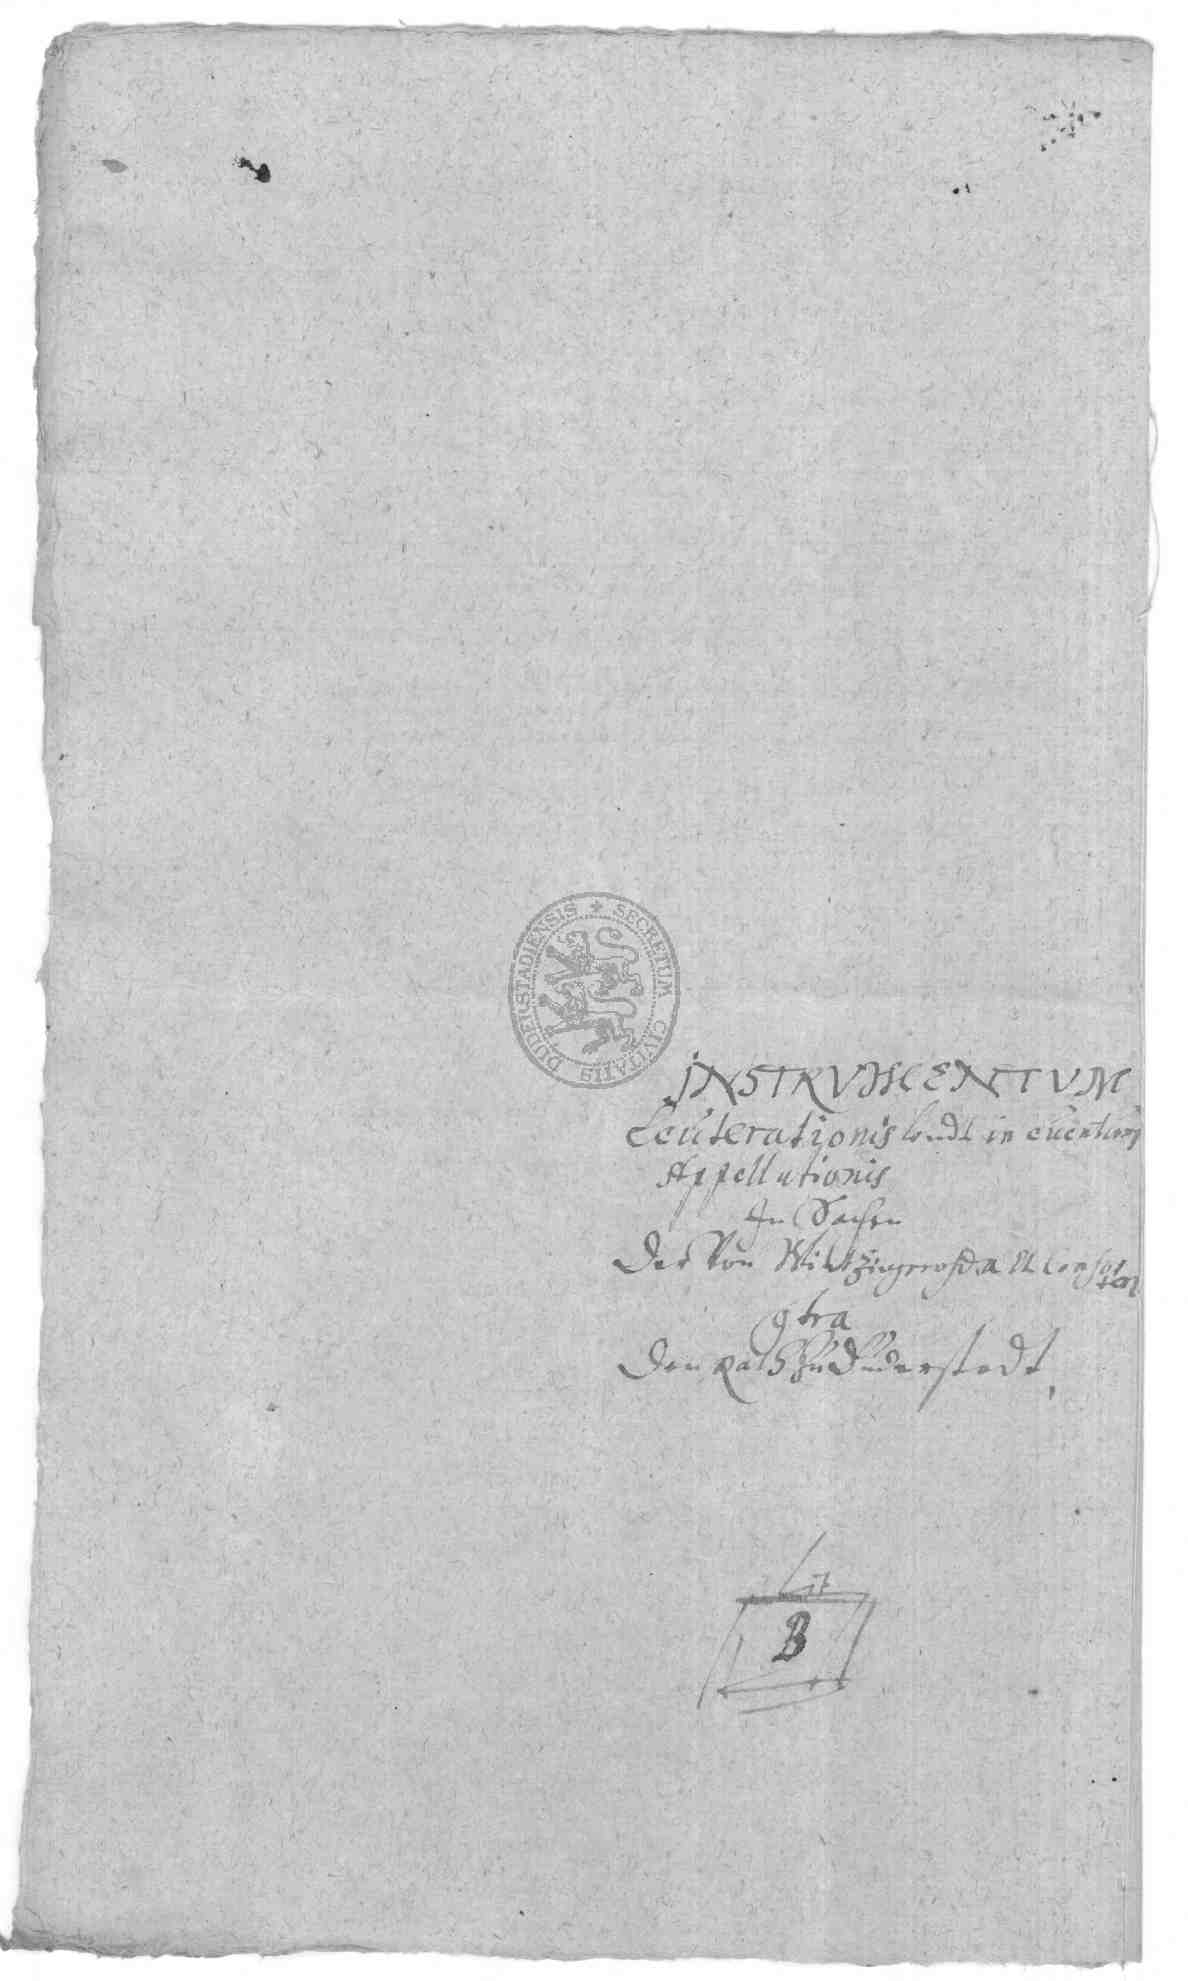 SECRETUM CIVITATIS DUDERSTADIENSIS
INSTRVMENTVM
Leuterationis vndt in euentum
Appellationis
In Sachen
Der Von Wintzingeroda et Consorten
9tra
Den Rath Zu Duderstadt,
Lit
B